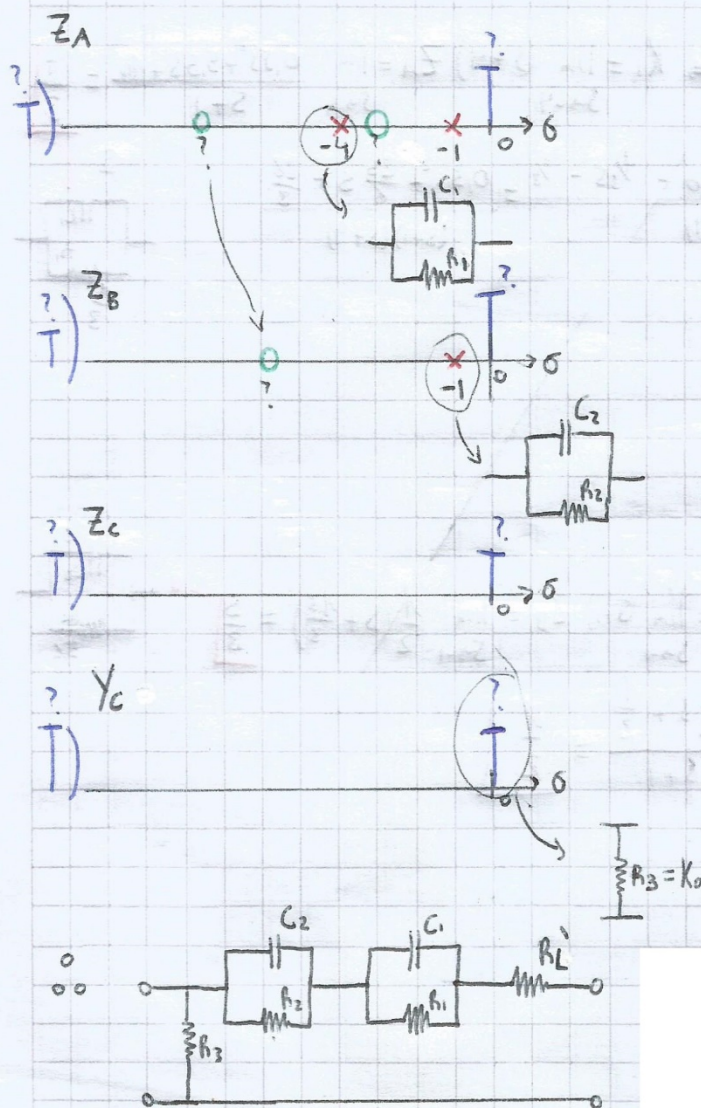 Z_A
? ?
? -4 ? -1 0 σ
C₁
R₁
Z_B
? ?
? -1 0 σ
C₂
R₂
Z_C
? ?
0 σ
Y_C
? ?
0 σ
R₃ = K₀
C₂ C₁ R_L'
R₂ R₁
R₃